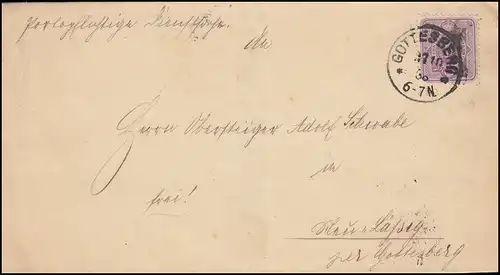 Portopflichtige Dienstsache.
An
* GOTTESBERG *
6-7N.
Herrn Obersteiger Adolf Schwabe
in
frei!
Neu-Lässig
per Gottesberg